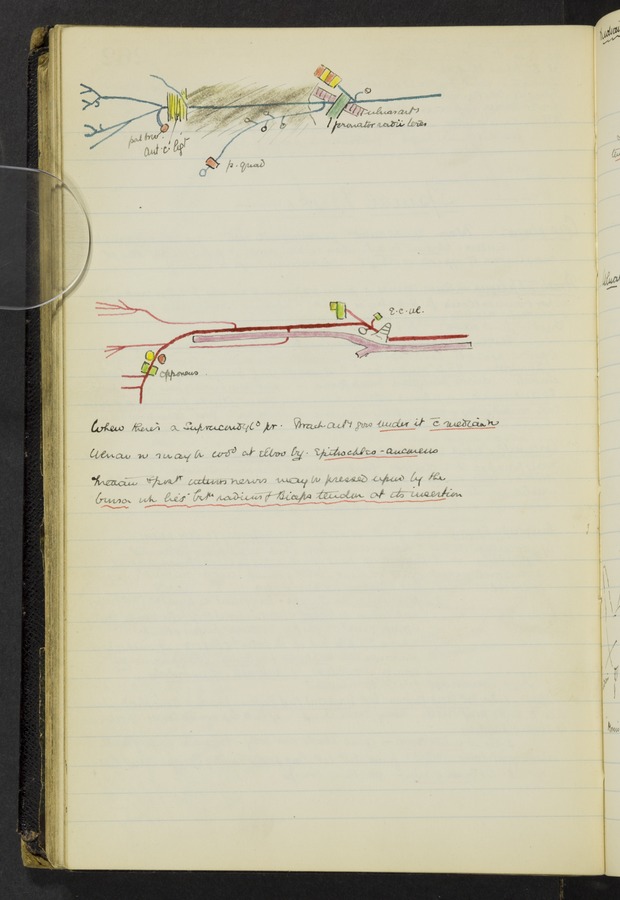 ulnar art
pronator radii teres
Ant. c. ligt
p. quad
opponens
When there's a Supracondylo pr. Brach art gos under it c̄ median n
Ulnar n may be covd at elbow by Epitrochleo-anconeus
Median & post interos nerves may be pressed upon by the
bursa wh lies betn radius & Biceps tendon at its insertion